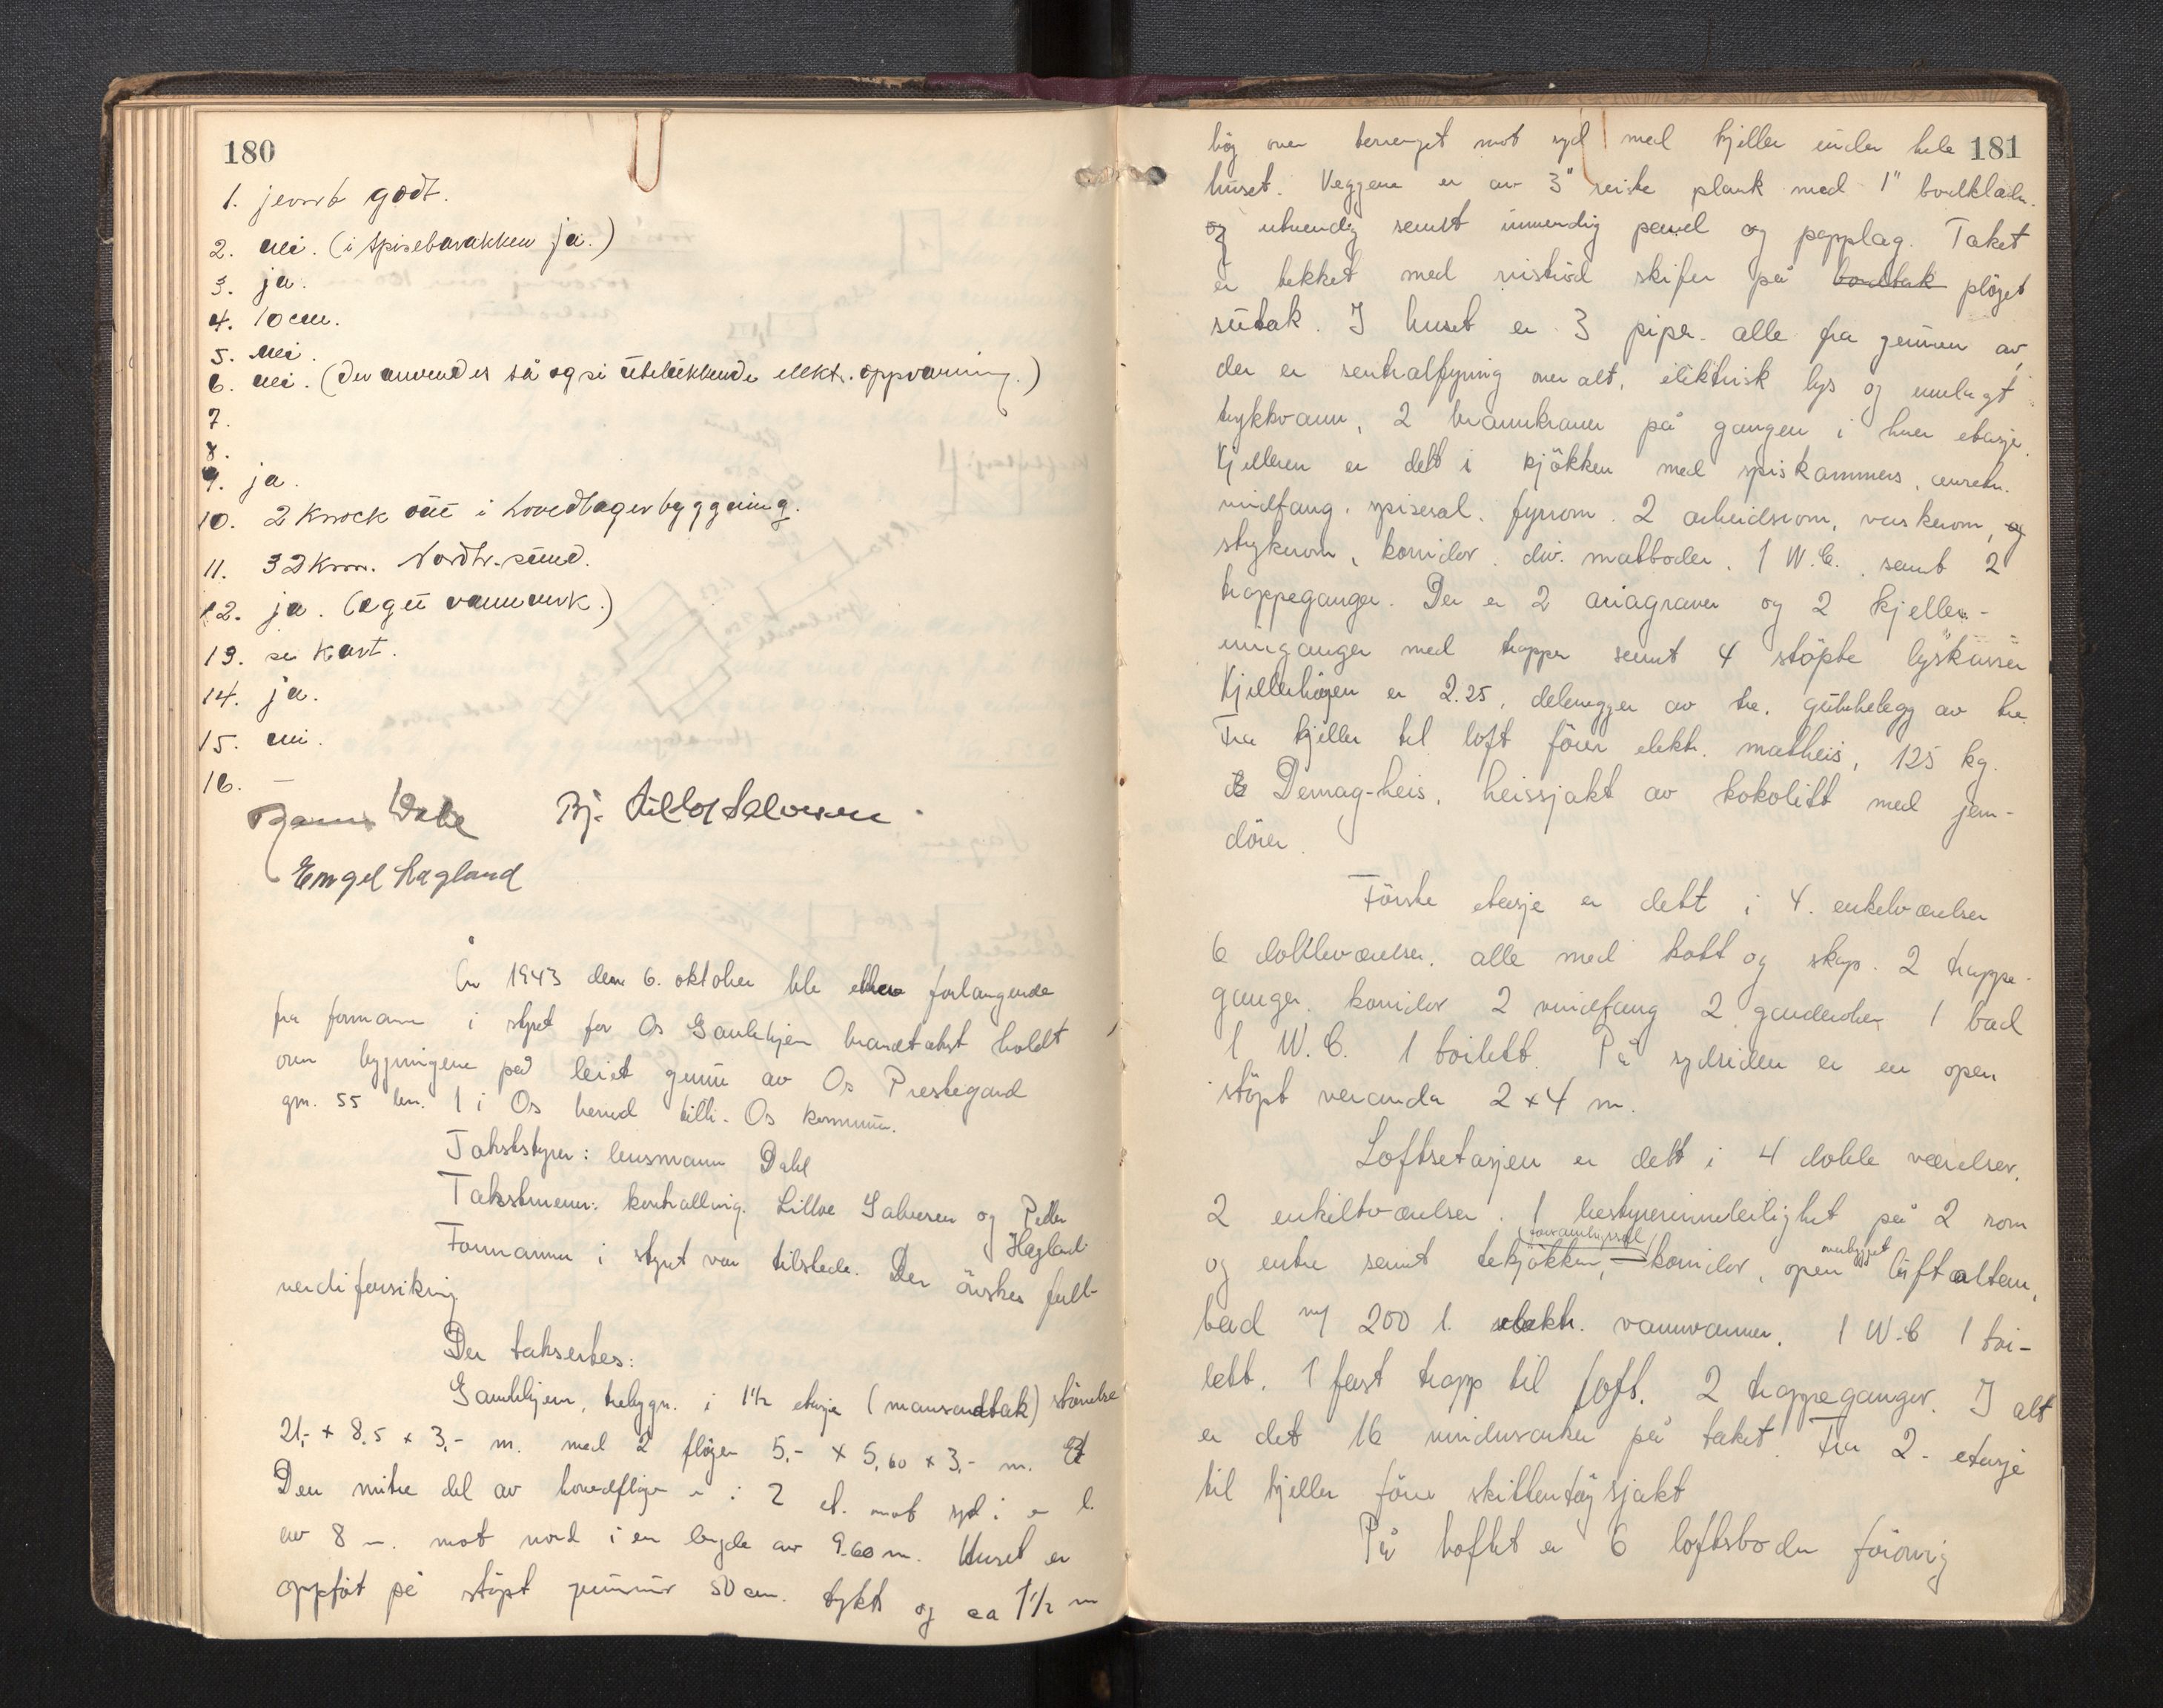 180
1. jevnt godt.
2. nei. (i spisebarakken ja.)
3. ja.
4. 10 cm.
5. nei.
6. nei. (der anvendes så og si utelukkende elektr. oppvarming.)
7.
8.
9. ja.
10. 2 knock out i hovedlagerbyggning.
11. 32 Km. Nordtr.sund.
12. ja. (eget vannverk.)
13. se kart.
14. ja.
15. nei.
16. —
Dahl Bj. Lilloe Salvesen
Engel Hagland
År 1943 den 6. oktober ble etter forlangende
fra formann i styret for Os Gamlehjem branntakst holdt
over bygningene på leiet grunn av Os Prestegard
gnr. 55 bnr. 1 i Os herred tilh. Os kommune.
Takststyrer: lensmann Dahl
Takstmenn: kontrolling. Lilloe Salvesen og Peder
Hagland
Formannen i styret var tilstede. Der önskes full-
verdiforsikring
Der takseres:
Gamlehjem, trebygn. i 1½ etasje (mansardtak) störrelse
21,- x 8.5 x 3,- m. med 2 flöyer 5,- x 5,60 x 3,- m.
Den mitre del av hovedflöyen er i 2 et. mot syd i en l.
av 8 m. mot nord i en lengde av 9.60 m. Huset er
oppfört på stöpt grunnmur 50 cm. tykk og ca 1½ m
181
höy over terrenget mot syd med kjeller under hele
huset. Veggene er av 3" reiste plank med 1" bordklædn.
og utvendig samt innvendig panel og papplag. Taket
er tekket med skifer på bordtak plöyet
sutak. I huset er 3 piper alle fra grunnen av,
der er sentralfyring over alt, elektrisk lys og innlagt
trykkvann, 2 brannkraner på gangen i hver etasje.
Kjelleren er delt i kjökken med spiskammers, anretn.
vindfang, spisesal, fyrrom, 2 arbeidsrom, vaskerom, og
strykerom, korridor, div. matboder, 1 W.C., samt 2
trappeganger. Der er 2 ariagraver og 2 kjeller-
innganger med trapper samt 4 stöpte lyskasser
Kjellerhöyen er 2.25, delevegger av tre, gulvbelegg av tre.
Fra kjeller til loft förer elektr. matheis, 125 kg.
Demag-heis, heissjakt av kokolitt med jern-
dörer.
Förste etasje er delt i 4. enkelværelser
6 dobbelværelser, alle med kott og skap. 2 trappe-
ganger, korridor 2 vindfang 2 garderober 1 bad
1 W.C. 1 toilett. På sydsiden er en open
stöpt veranda 2 x 4 m.
Loftsetasjen er delt i 4 doble værelser,
2 enkeltværelser. 1 bestyrerinneleilighet på 2 rom
og entre samt tekjökken, (forsamlingssal) korridor, open overbygget luftaltan,
bad m/ 200 l. elektr. vannvarmer, 1 W.C 1 toi-
lett. 1 fast trapp til loft. 2 trappeganger. I alt
er det 16 vindusarker på taket. Fra 2. etasje
til kjeller förer skittentöysjakt
På loftet er 6 loftsboder forövrig